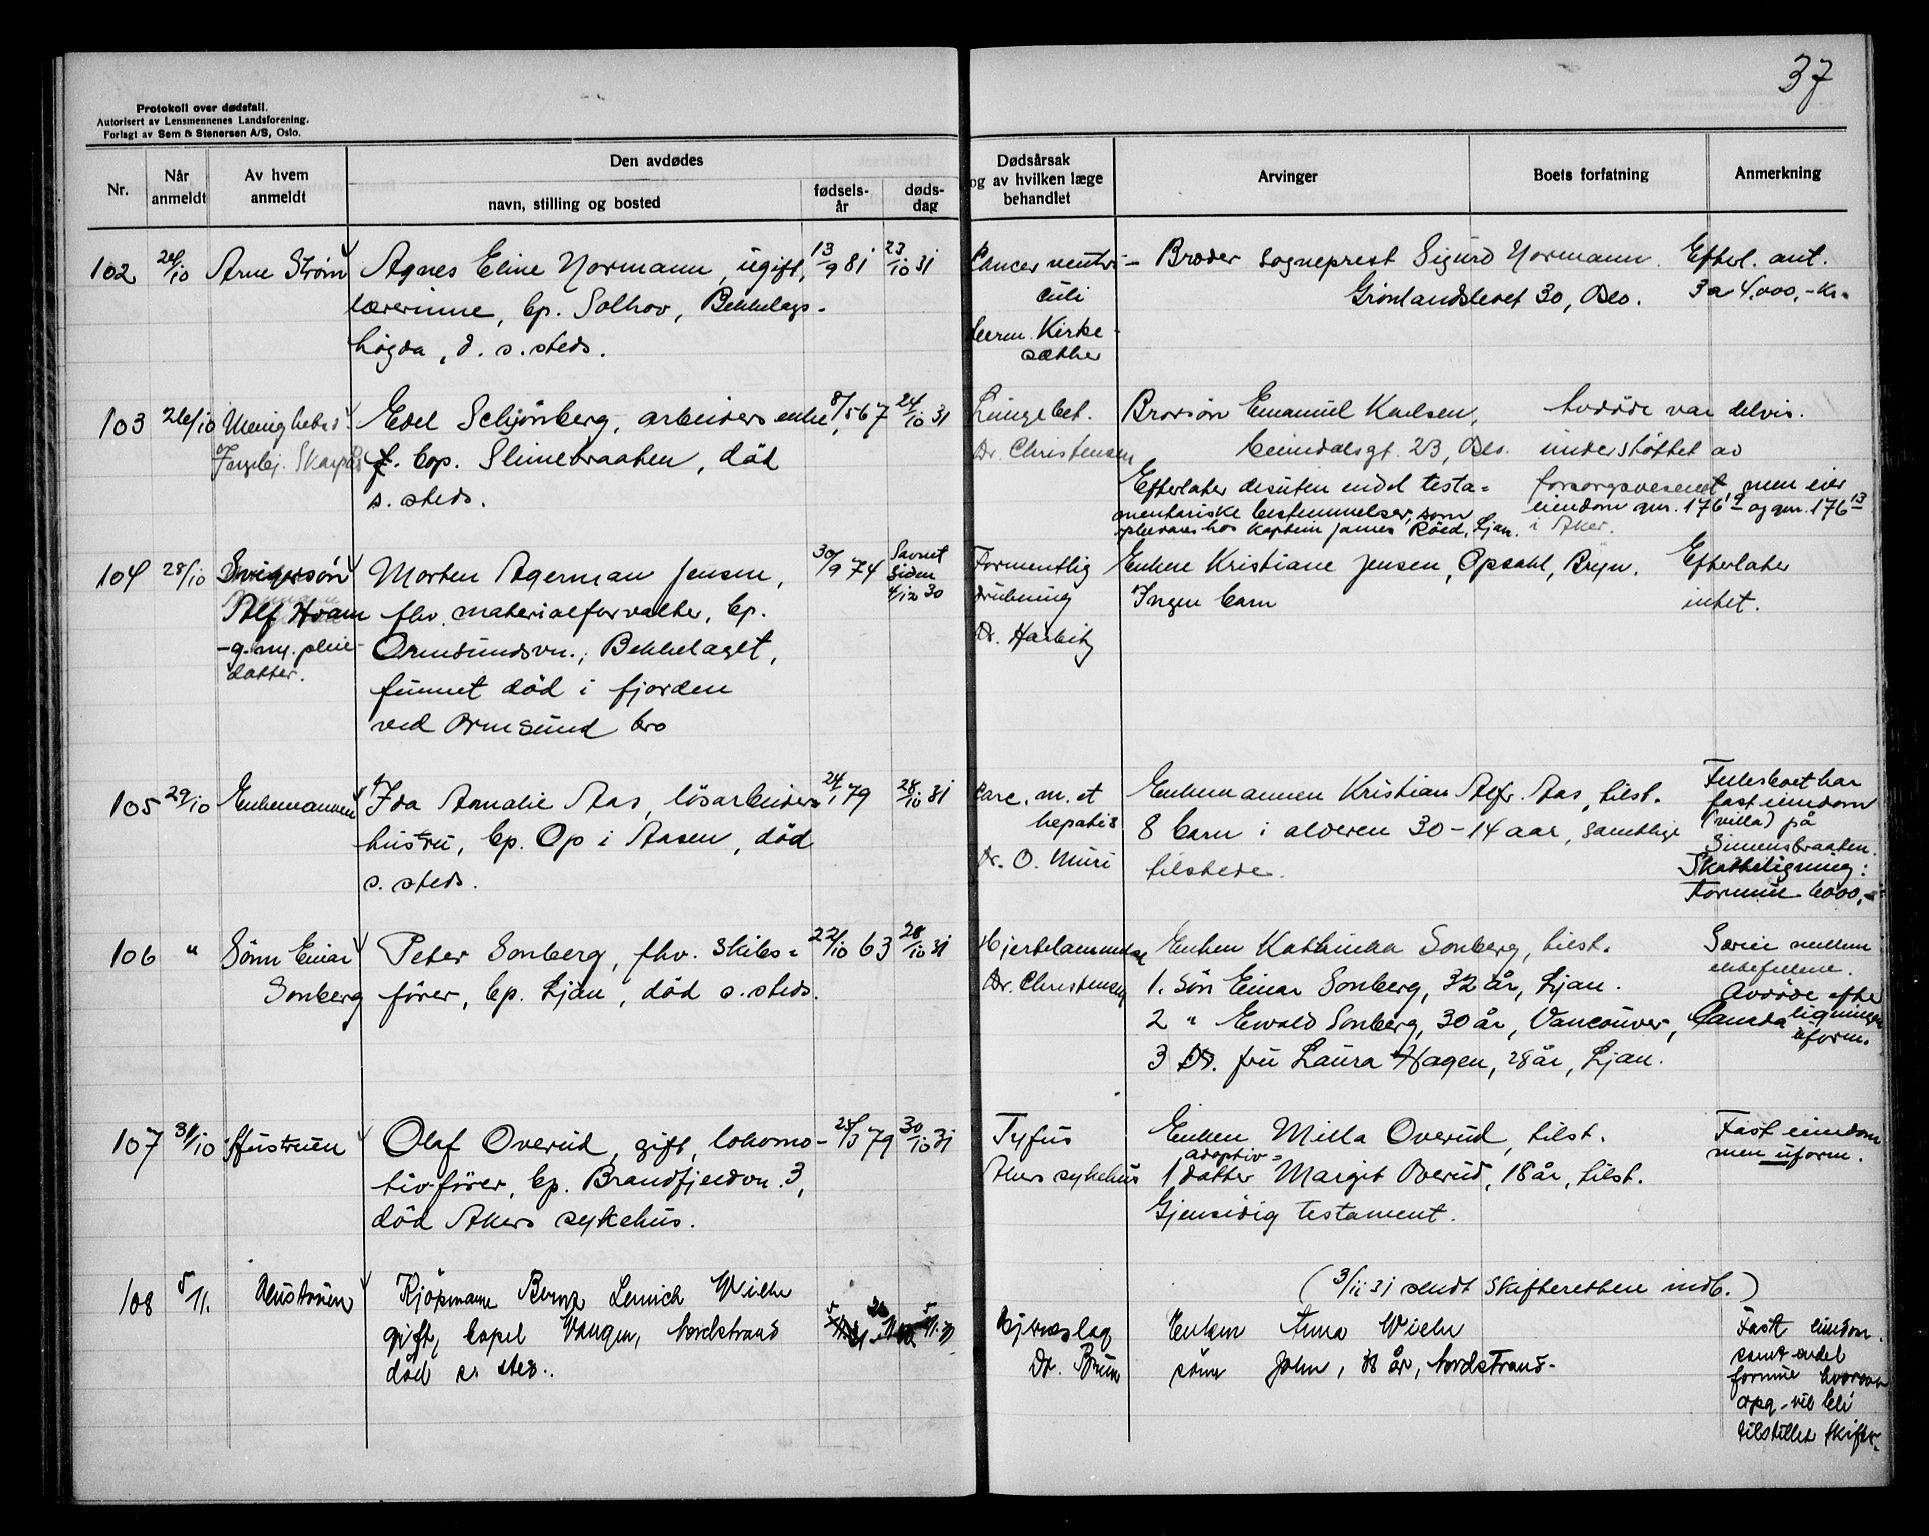 37
Protokoll over dødsfall.
Autorisert av Lensmennenes Landsforening.
Forlagt av Sem & Stenersen A/S, Oslo.
Nr.
Når anmeldt
Av hvem anmeldt
Den avdødes
navn, stilling og bosted
fødsels-år
døds-dag
Dødsårsak og av hvilken læge behandlet
Arvinger
Boets forfatning
Anmerkning
102 24/10 Arne Strøm
Agnes Eline Normann, ugift, 13/9 81 23/10 31
lærerinne, bp. Solhov, Bekkelags-
høgda, d. s. steds.
Cancer ventri-
culi
Kirke-
sæther
Broder sogneprest Sigurd Normann.
Grønlandsleret 30, Oslo.
Efterl. ant.
3 a 4.000,- kr.
103 26/10 Menighets
Ingebj.
Edel Schjønberg, arbeiders enke, 8/5 67 24/10 31
f. bop. Slimebraaten, død
s. steds.
Lungebet.
Dr. Christensen
Brorsøn Emanuel Karlsen,
23, Oslo.
Efterlater desuten endel testa-
mentariske bestemmelser, som
opbevares hos kaptein James Röed, Ljan.
Avdøde var delvis.
understøttet av
forsorgsvesenet, men eier
eiendom gnr. 176 og gnr. 176 13
i Aker.
104 28/10 Svigersøn
Alf Hvam
-g. m. pleie-
datter.
Morten Agerman Jensen, 30/9 74
Savnet
siden
4/12 30
fhv. materialforvalter, bp.
Ormsundsvn., Bekkelaget,
funnet død i fjorden
ved Ormsund bro
Formentlig
drukning
Dr. Harbitz
Enken Kristiane Jensen, Opsahl, Bryn.
Ingen barn
Efterlater
intet.
105 29/10 Enkemannen
Ida Amalie Aas, løsarbeiders 24/1 79 28/10 31
hustru, bp. Op i Aasen, død
s. steds.
Carc. m. et
hepatis
Dr. O. Muri
Enkemannen Kristian Alfr. Aas, tilst.
8 barn i alderen 30-14 aar, samtlige
tilstede.
Fellesboet har
fast eiendom
(villa) på
Simensbraaten.
Skatteligning:
Formue 6000,-
106 " Sønn Einar
Sonberg
Peter Sonberg, fhv. skibs- 22/10 63 28/10 31
fører, bp. Ljan, død s. steds.
Hjertelammelse
Dr. Christensen
Enken Kathinka Sonberg, tilst.
1. Søn Einar Sonberg, 32 år, Ljan.
2 " Ewald Sonberg, 30 år, Vancouver, Canada
3 Dr. fru Laura Hagen, 28 år, Ljan.
Særeie mellem
ektefellene.
Avdøde efter
ligningen
uform.
107 31/10 Hustruen
Olaf Overud, gift, lokomo- 25/3 79 30/10 31
tivfører, bp. Brandfjeldvn. 3,
død Akers sykehus.
Tyfus
Akers sykehus
Enken Milla Overud, tilst.
adoptiv-
1 datter Margit Overud, 18 år, tilst.
Gjensidig testament.
Fast eiendom
men uform.
108 5/11. Hustruen
(3/11 31 sendt skifteretten indb.)
Kjøpmann Lenvich Wiehe
gift, bopel Nordstrand
død s. sted.
Hjerneslag
Dr. Bruun
Enken Anna Wiehe
sønn John, år, Nordstrand.
Fast eiendom.
samt endel
formue hvorom
opg. vil bli
tilstillet skifter.